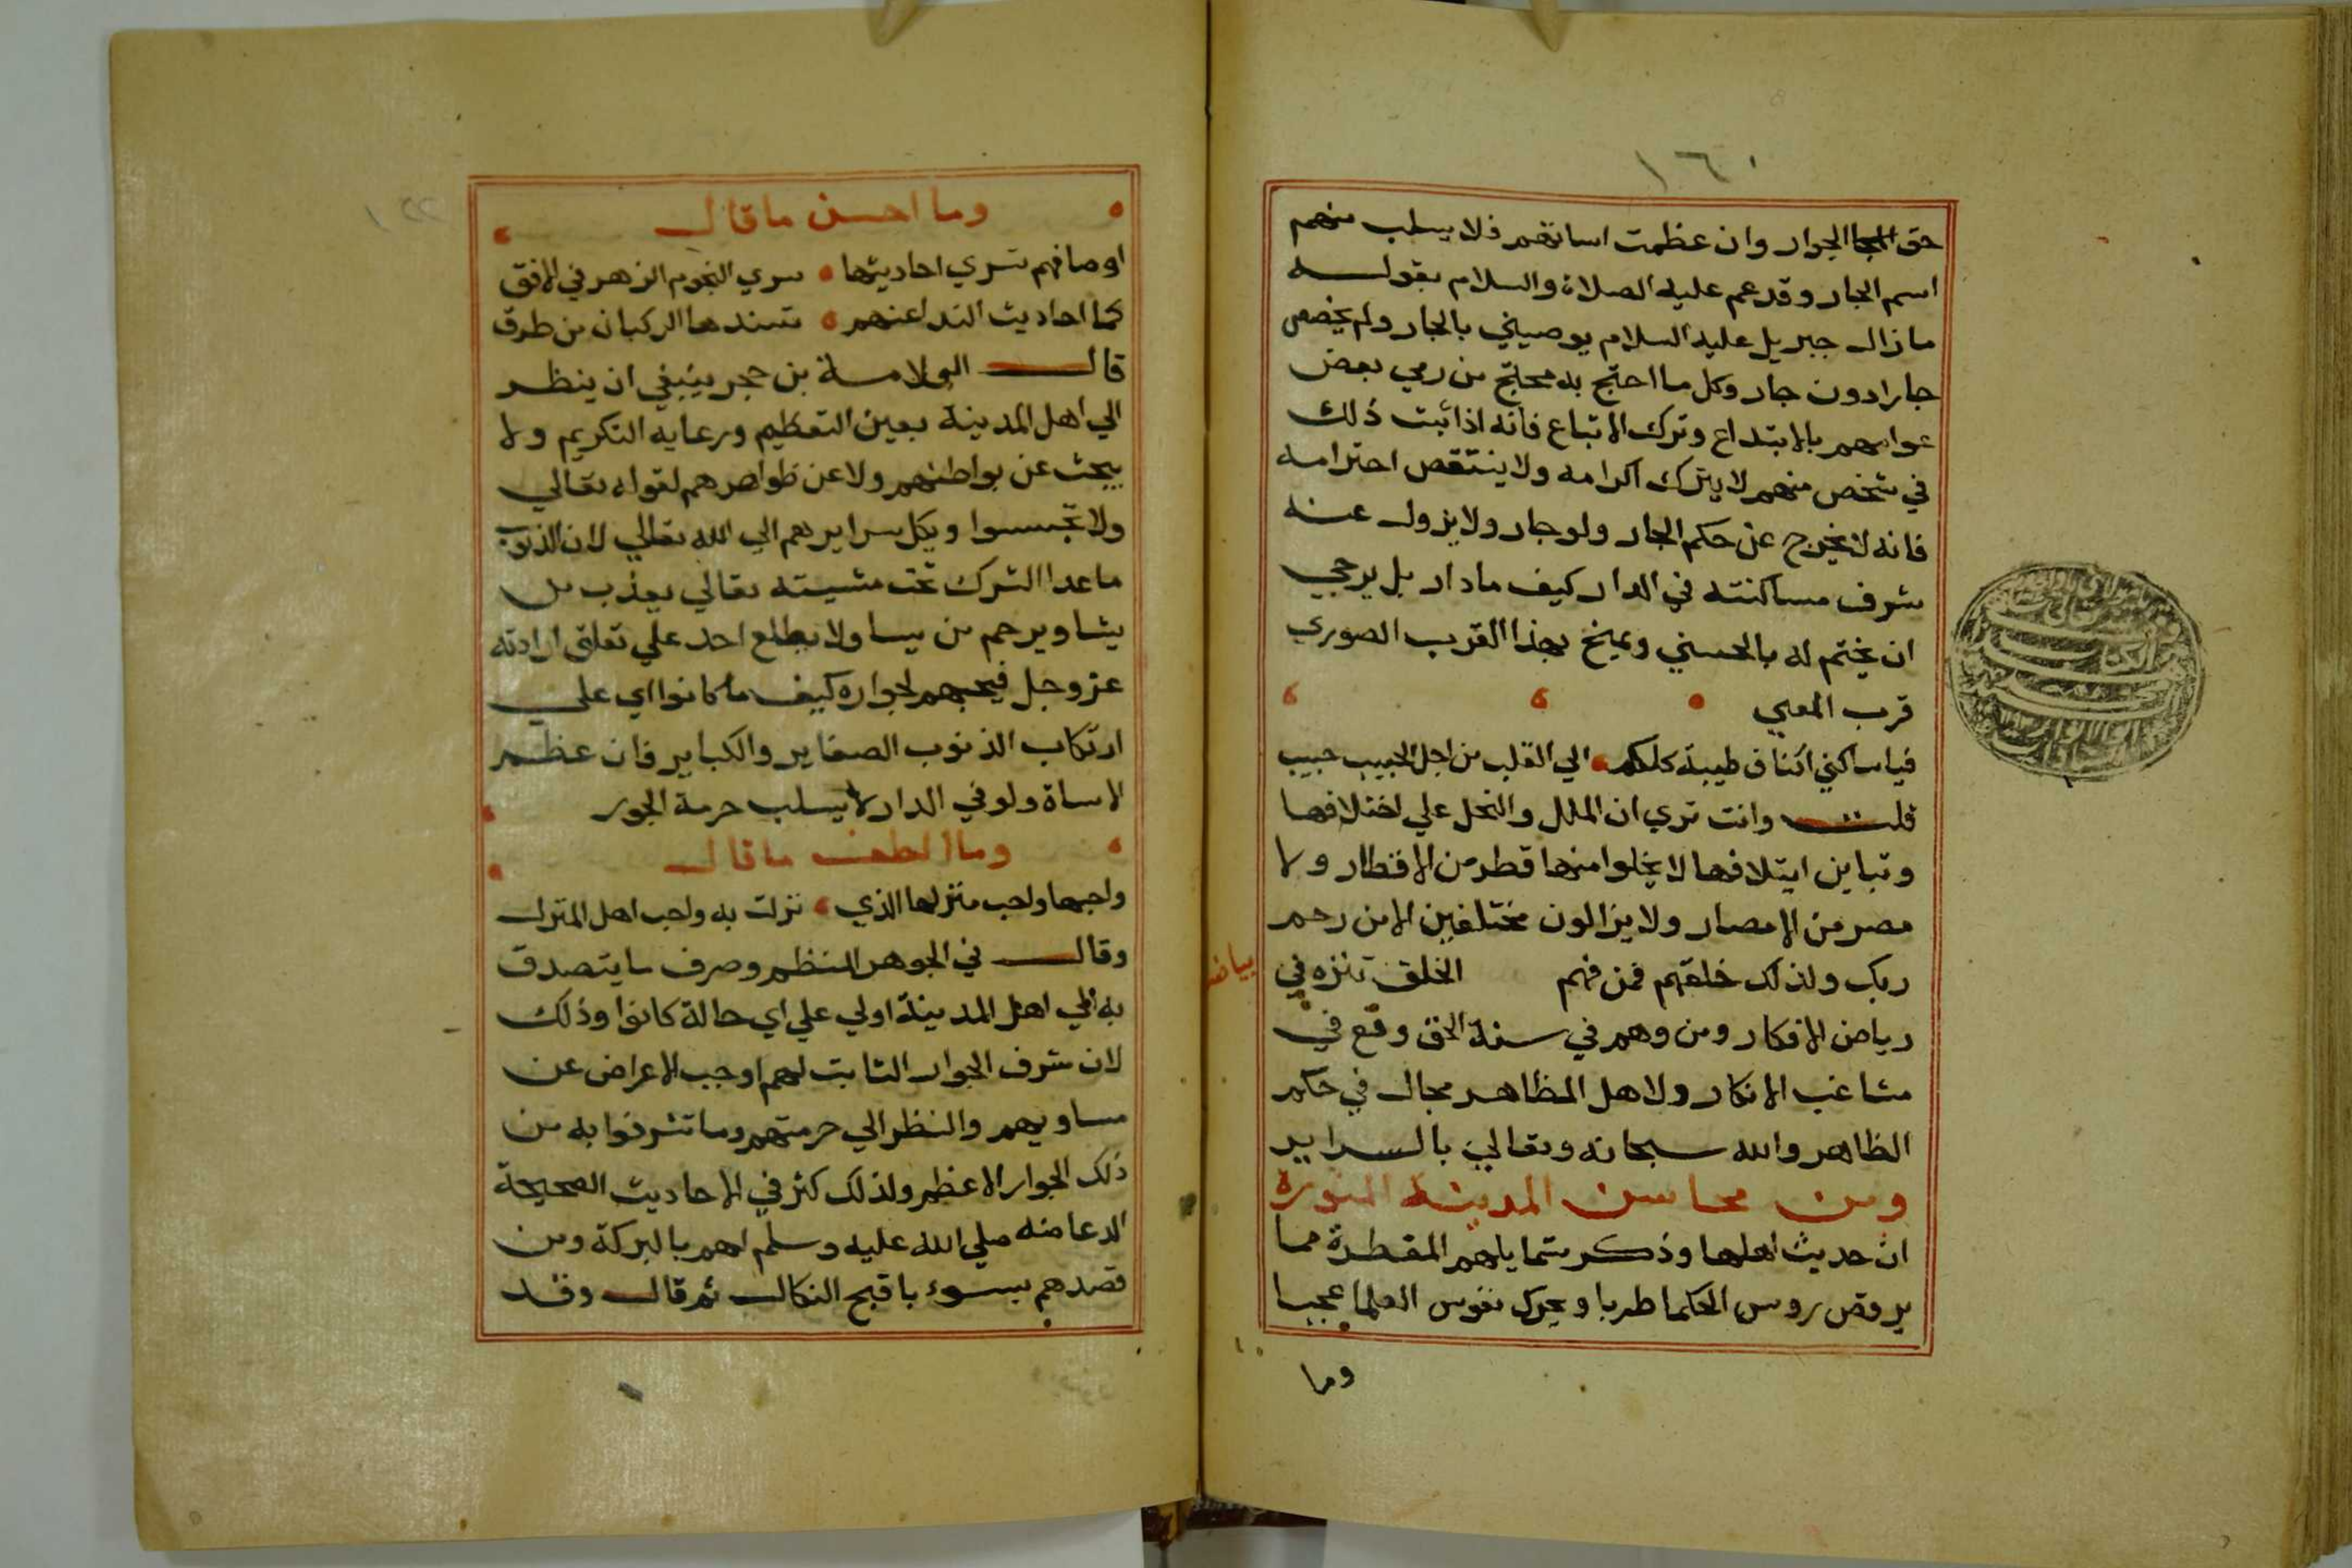 ١٦٠
حق الجوار وان عظمت اساتهم فلا يسلب منهم
اسم الجار وقد عم عليه الصلاة والسلام بقوله
ما زال جبريل عليه السلام يوصيني بالجار ولم يخص
جارا دون جار وكل ما احتج به محتج من رمي بعض
عوامهم بالابتداع وترك الاتباع فانه اذا ثبت ذلك
في شخص منهم لا يترك اكرامه ولا ينتقص احترامه
فانه لا يخرج عن حكم الجار ولو جار ولا يزول عنه
شرف مساكنته في الدار كيف ما دار بل يرجي
ان يختم له بالحسني ويمنح بهذا القرب الصوري
قرب المعني
فيا ساكني اكناف طيبة كلكم الي القلب من اجل الحبيب حبيب
قلت وانت تري ان الملل والنحل علي اختلافها
وتباين ايتلافها لا يخلوا منها قطر من الاقطار ولا
مصر من الامصار ولا يزالون مختلفين الا من رحم
ربك ولذلك خلقهم فمن فهم الخلق تنزه في
رياض الافكار ومن وهم في سنة الحق وقع في
مشاغب الانكار ولاهل المظاهر مجال في حكم
الظاهر والله سبحانه وتعالي بالسراير
ومن محاسن المدينة المنورة
ان حديث اهلها وذكر شمايلهم المقطرة مما
يرقص روس الحكما طربا ويحرك نفوس العلما عجبا
وما
وما احسن ما قال
اوصافهم تسري احاديثها سري النجوم الزهر في الافق
كما احاديث الندا عنهم تسندها الركبان من طرق
قال العلامة بن حجر ينبغي ان ينظر
الي اهل المدينة بعين التعظيم ورعاية التكريم ولا
يبحث عن بواطنهم ولا عن ظواهرهم لقوله تعالي
ولا تجسسوا ويكل سرايرهم الي الله تعالي لان الذنوب
ما عدا الشرك تحت مشيته تعالي يعذب من
يشا ويرحم من يسا ولا يطلع احد علي تعلق ارادته
عز وجل فيحبهم لجواره كيف ما كانوا اي علي
ارتكاب الذنوب الصغاير والكباير فان عظم
الاساة ولو في الدار لا يسلب حرمة الجور
وما الطف ما قال
واحبها واحب منزلها الذي نزلت به واحب اهل المنزل
وقال في الجوهر المنظم وصرف ما يتصدق
به الي اهل المدينة اولي علي اي حالة كانوا وذلك
لان شرف الجوار الثابت لهم اوجب الاعراض عن
مساويهم والنظر الي حرمتهم وما تشرفوا به من
ذلك الجوار الاعظم ولذلك كثر في الاحاديث الصحيحة
الدعا منه صلي الله عليه وسلم لهم بالبركة ومن
قصدهم بسوء باقبح النكال ثم قال وقد